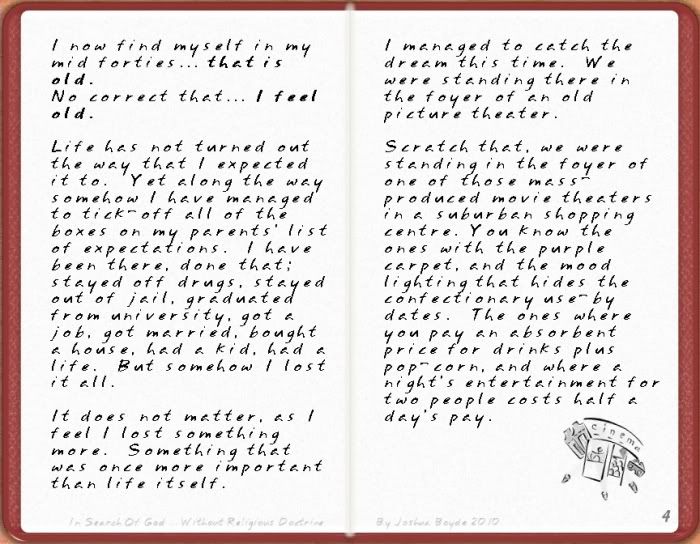 I now find myself in my
mid forties... that is
old.
No correct that... I feel
old.
Life has not turned out
the way that I expected
it to. Yet along the way
somehow I have managed
to tick-off all of the
boxes on my parents' list
of expectations. I have
been there, done that;
stayed off drugs, stayed
out of jail, graduated
from university, got a
job, got married, bought
a house, had a kid, had a
life. But somehow I lost
it all.
It does not matter, as I
feel I lost something
more. Something that
was once more important
than life itself.
In Search Of God ... Without Religious Doctrine
I managed to catch the
dream this time. We
were standing there in
the foyer of an old
picture theater.
Scratch that, we were
standing in the foyer of
one of those mass-
produced movie theaters
in a suburban shopping
centre. You know the
ones with the purple
carpet, and the mood
lighting that hides the
confectionary use-by
dates. The ones where
you pay an absorbent
price for drinks plus
pop-corn, and where a
night's entertainment for
two people costs half a
day's pay.
Cinema
By Joshua Boyde 2010
4